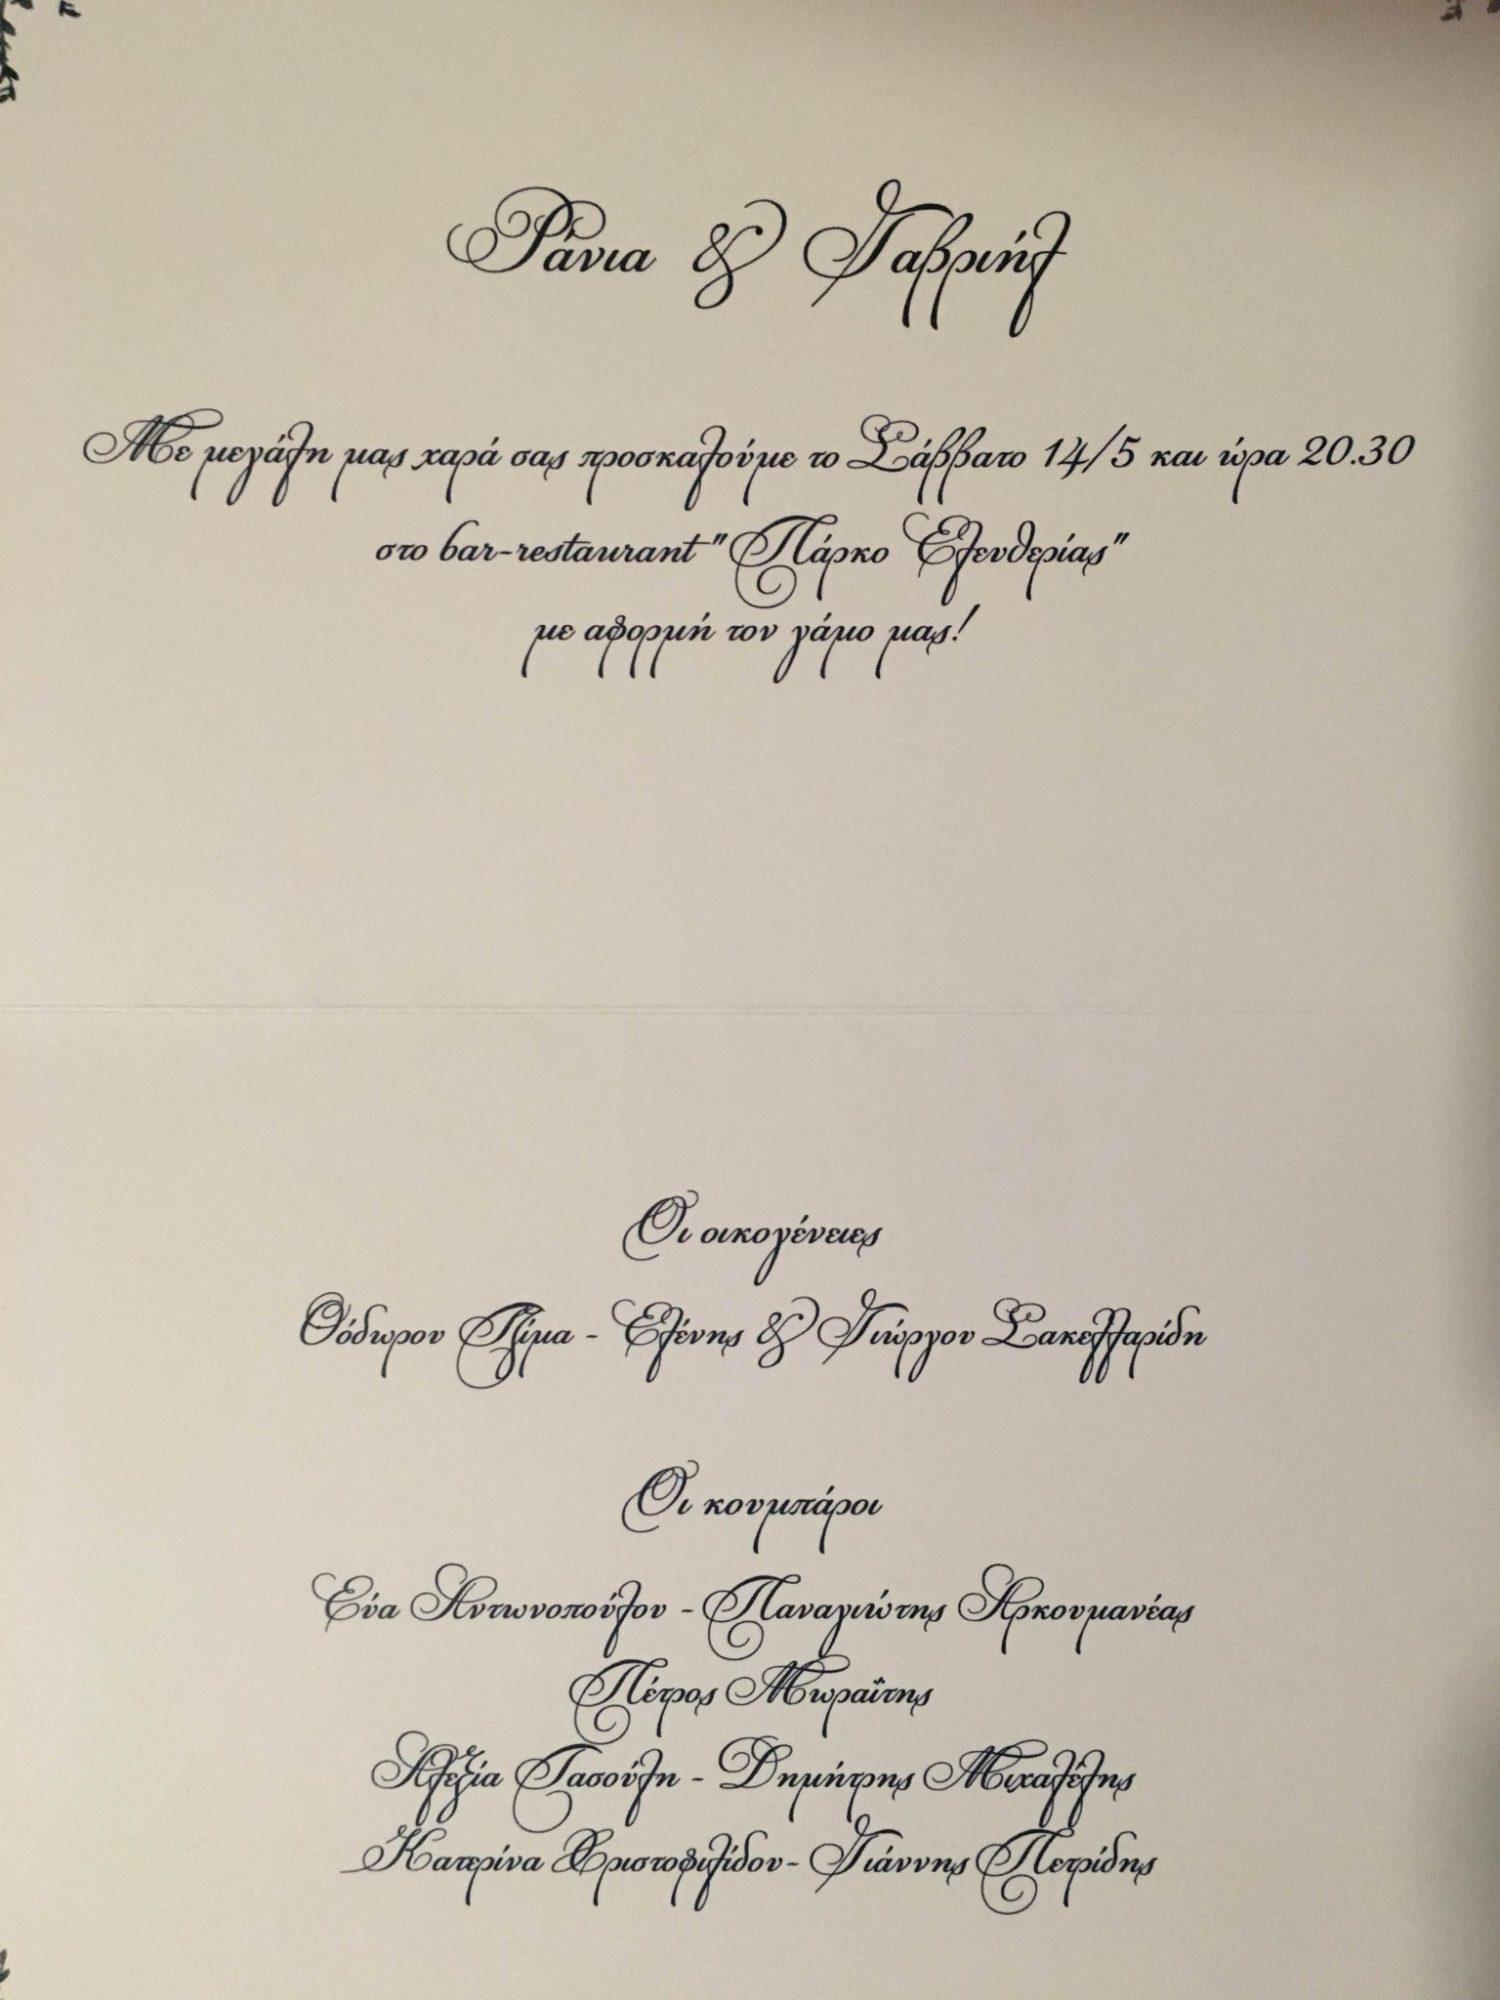 Ράνια & Γαβριήλ
Με μεγάλη μας χαρά σας προσκαλούμε το Σάββατο 14/5 και ώρα 20.30
στο bar-restaurant "Πάρκο Ελευθερίας"
με αφορμή τον γάμο μας!
Οι οικογένειες
Θόδωρου Τζίμα - Ελένης & Γιώργου Σακελλαρίδη
Οι κουμπάροι
Εύα Αντωνοπούλου - Παναγιώτης Αρκουμανέας
Πέτρος Μωραΐτης
Αλεξία Τασούλη - Δημήτρης Μιχαλέλης
Κατερίνα Χριστοφιλίδου- Γιάννης Πετρίδης